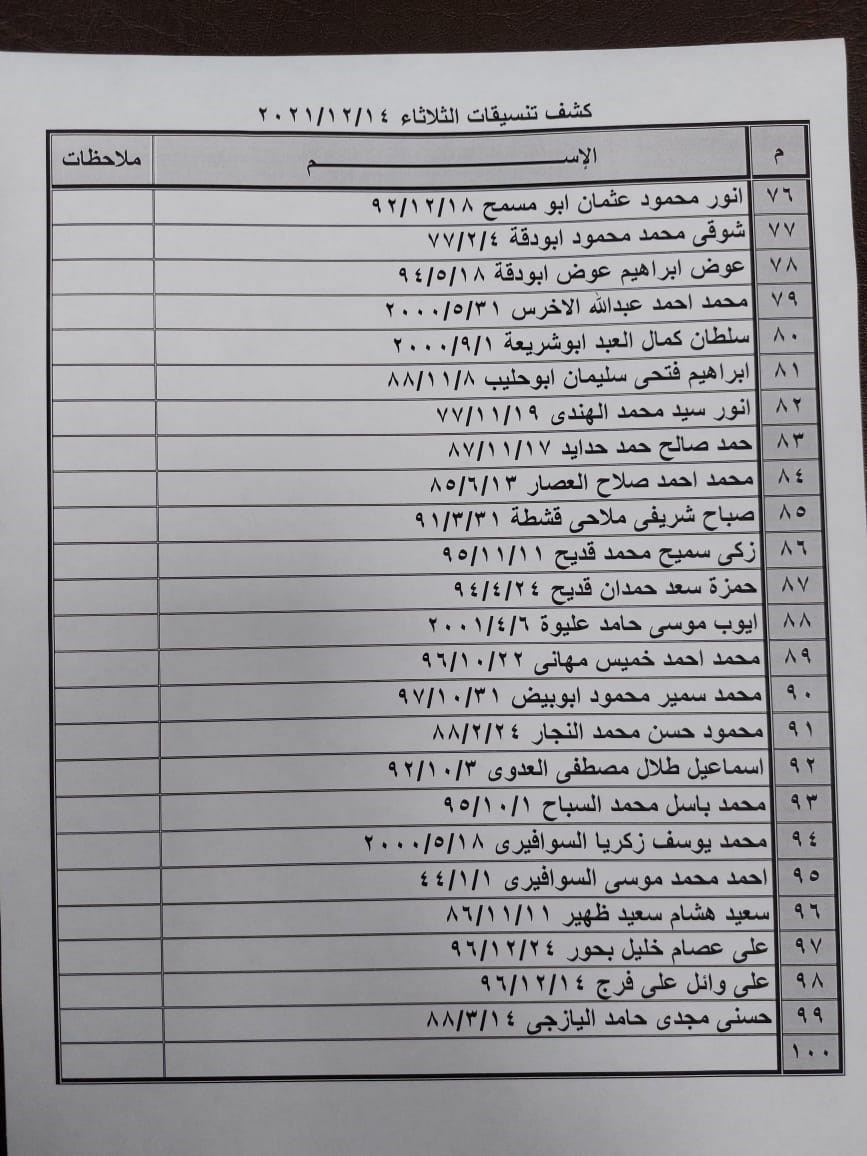 كشف تنسيقات الثلاثاء ٢٠٢١/١٢/١٤
م الإســـــــــــــم ملاحظات
٧٦ انور محمود عثمان ابو مسمح ٩٢/١٢/١٨
٧٧ شوقى محمد محمود ابودقة ٧٧/٢/٤
٧٨ عوض ابراهيم عوض ابودقة ٩٤/٥/١٨
٧٩ محمد احمد عبدالله الاخرس ٢٠٠٠/٥/٣١
٨٠ سلطان كمال العبد ابوشريعة ٢٠٠٠/٩/١
٨١ ابراهيم فتحى سليمان ابوحليب ٨٨/١١/٨
٨٢ انور سيد محمد الهندى ٧٧/١١/١٩
٨٣ حمد صالح حمد حدايد ٨٧/١١/١٧
٨٤ محمد احمد صلاح العصار ٨٥/٦/١٣
٨٥ صباح شريفى ملاحى قشطة ٩١/٣/٣١
٨٦ زكى سميح محمد قديح ٩٥/١١/١١
٨٧ حمزة سعد حمدان قديح ٩٤/٤/٢٤
٨٨ ايوب موسى حامد عليوة ٢٠٠١/٤/٦
٨٩ محمد احمد خميس مهانى ٩٦/١٠/٢٢
٩٠ محمد سمير محمود ابوبيض ٩٧/١٠/٣١
٩١ محمود حسن محمد النجار ٨٨/٢/٢٤
٩٢ اسماعيل طلال مصطفى العدوى ٩٢/١٠/٣
٩٣ محمد باسل محمد السباح ٩٥/١٠/١
٩٤ محمد يوسف زكريا السوافيرى ٢٠٠٠/٥/١٨
٩٥ احمد محمد موسى السوافيرى ٤٤/١/١
٩٦ سعيد هشام سعيد ظهير ٨٦/١١/١١
٩٧ على عصام خليل بحور ٩٦/١٢/٢٤
٩٨ على وائل على فرج ٩٦/١٢/١٤
٩٩ حسنى مجدى حامد اليازجى ٨٨/٣/١٤
١٠٠